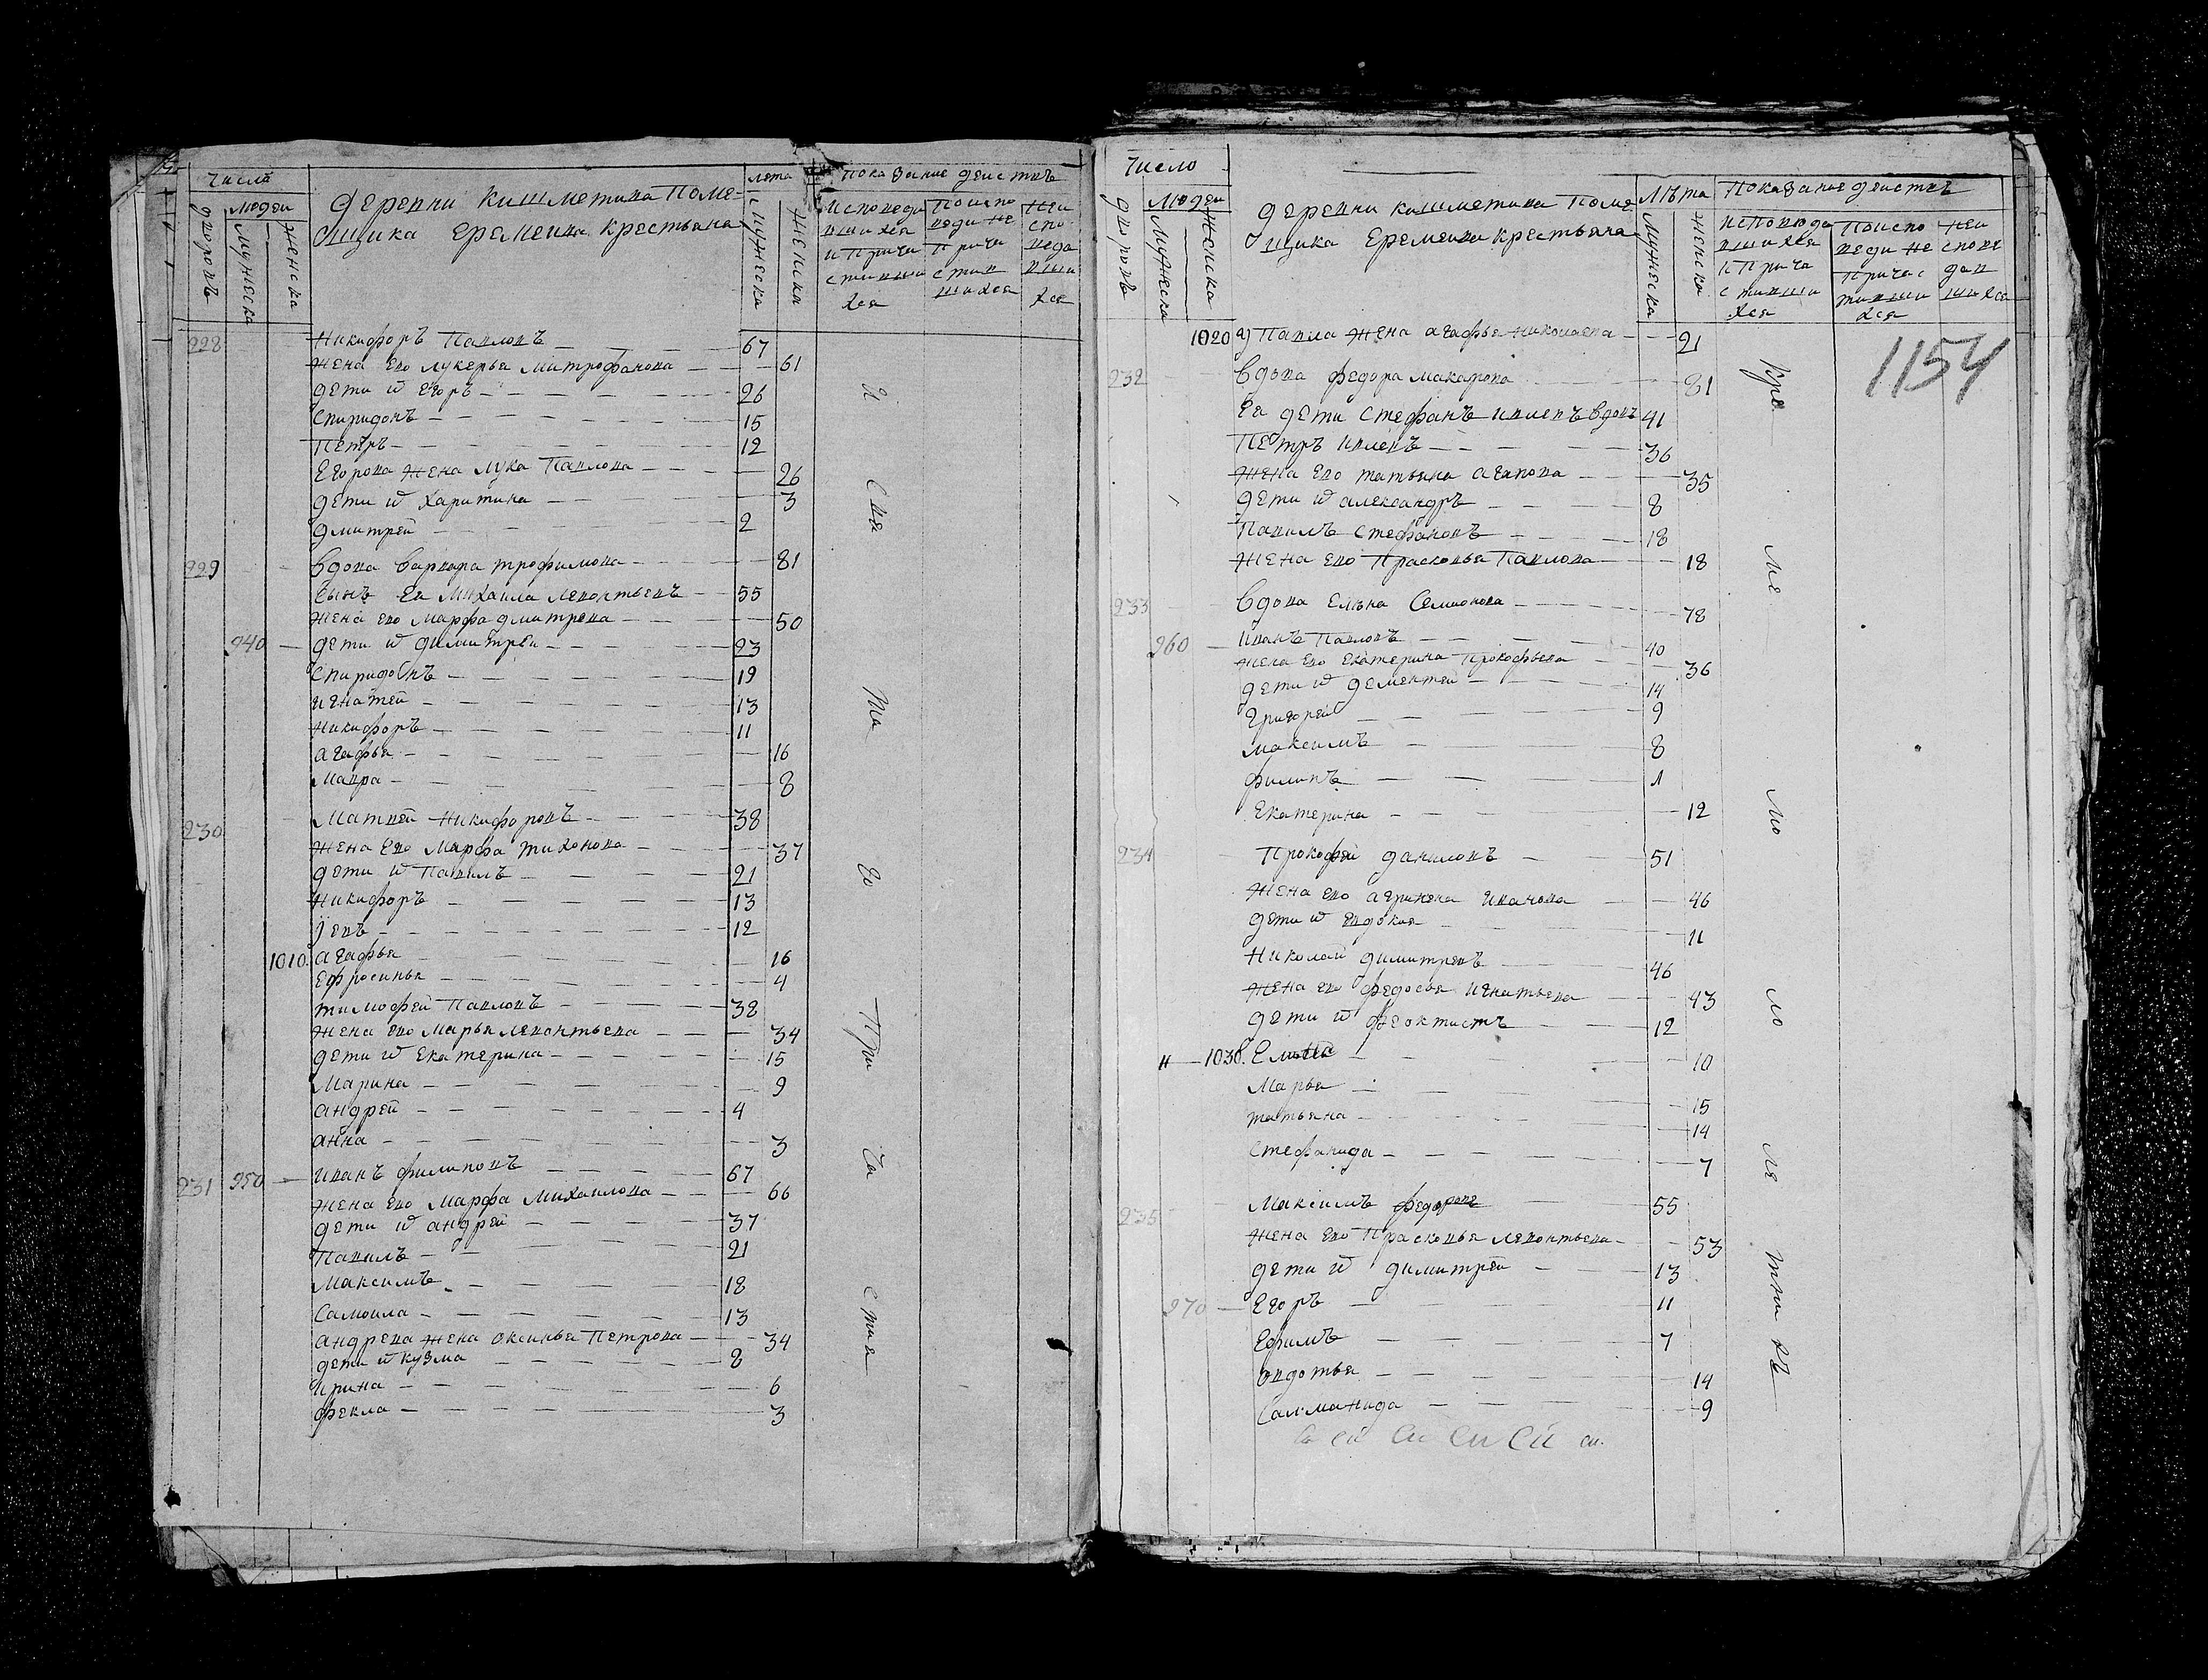 Число
Людей
дворовъ
Мужеска
Женска
деревни Кишметива Поме-
щика Еремеива крестьяна
лета
Мужеска
Женска
Показание действъ
Исповеда
вшихся
и Прича
стивши
хся
Поиспо
веди не
Прича
стив
шихся
Неи
спо
веда
вши
хся
228
Никифоръ Павловъ 67
Жена ево Лукерья Митрофанова 61
дети ѿ Егоръ 26
Спиридонъ 15
Петръ 12
Егорова Жена Лука Павлова 26
дети ѿ Харитина 3
дмитрей 2
229 Вдова Варвара трофимова 81
Сынъ Ея Михаила Леонтьевъ 55
Жена ево Марфа дмитрева 50
940 дети ѿ димитреи 23
Спиридонъ 19
игнатей 13
Никифоръ 11
агафья 16
Мавра 8
230 Матвей Никифоровъ 38
Жена Ево Марфа тихонова 37
дети ѿ Павилъ 21
Никифоръ 13
Iевъ 12
1010. агафья 16
Ефросинья 4
тимофей Павловъ 38
Жена ево Марья Леонтьева 34
дети ѿ Екатерина 15
Марина 9
андрей 4
анна 3
231 950 Иванъ филиповъ 67
Жена ево Марфа Михаилова 66
дети ѿ андреи 37
Павилъ 21
Максимъ 18
Самоила 13
андрева жена оксинья Петрова 34
дети ѿ Кузма 8
ирина 6
фекла 3
И
Свя
та
го
При
ча
стия
Число
Людеи
дворовъ
Мужеска
Женска
деревни кишметива Поме
щика Еремеива крестьяна
Лѣта
Мужеска
Женска
Показание действъ
исповѣда
вшихся
и Прича
стивши
хся
Поиспо
веди не
причас
тивши
хся
неи
спове
дав
шихся
1154
1020 у Павла Жена агафья Николаева 21
232 Вдова федора Макарова 81
Ея дети Стефанъ Ивлевъ Вдовъ 41
Петръ Ивлевъ 36
Жена ево татьяна агапова 35
дети ѿ александръ 8
Павилъ Стефановъ 18
Жена ево Прасковья Павлова 18
233 Вдова Елѣна Семионова 78
260 Иванъ Павловъ 40
Жена ево Екатерина Прокофьева 36
дети ѿ дементеи 14
Григорей 9
Максимъ 8
филипъ 1
Екатерина 12
234 Прокофей даниловъ 51
Жена ево агринена Иванова 46
дети ѿ евдокия 11
Николай димитревъ 46
Жена ево федосья Игнатьева 43
дети ѿ феоктистъ 12
1030. Елина 10
Марья 15
татьяна 14
Стефанида 7
235 Максимъ федоровъ 55
Жена ево Прасковья Леонтьева 53
дети ѿ димитрей 13
270 Егоръ 11
Ефимъ 7
овдотья 14
Саломанида 9